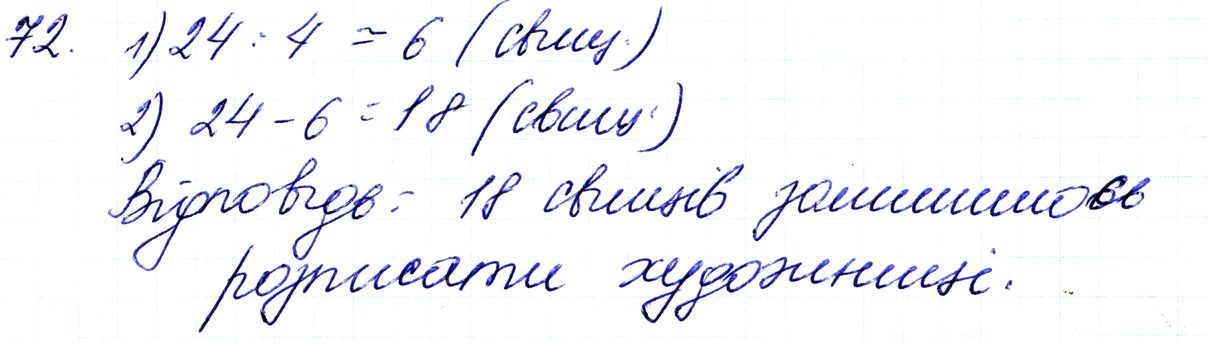 72. 1) 24 : 4 = 6 (свищ.)
2) 24 - 6 = 18 (свищ.)
Відповідь: 18 свищів залишилось
розписати художниці.